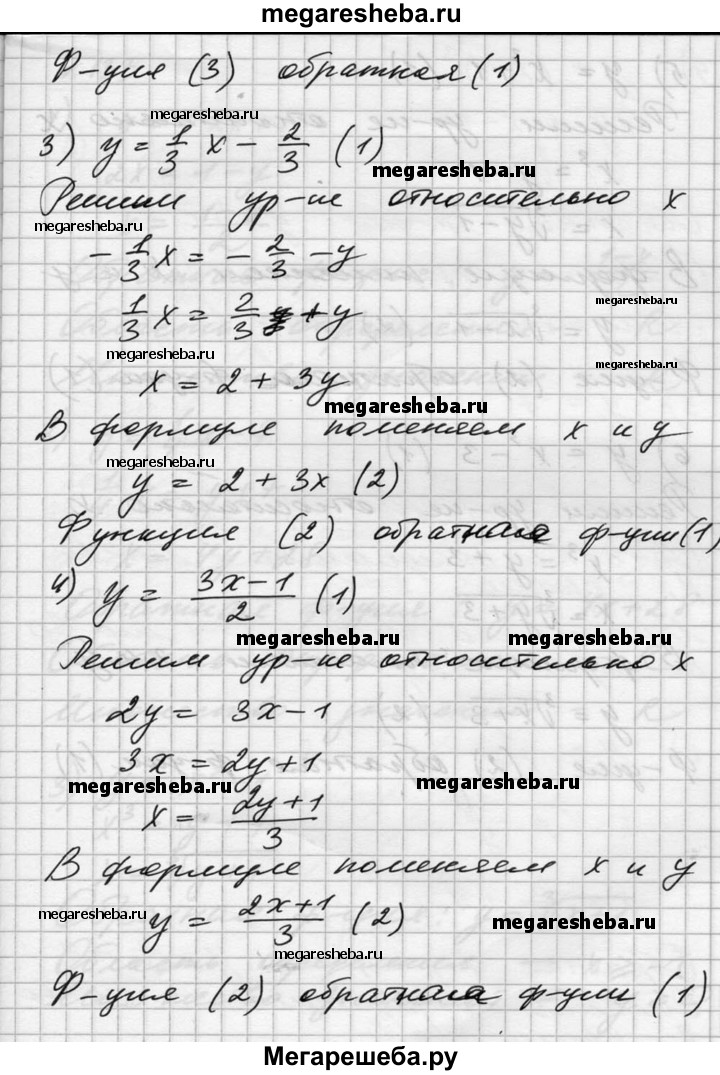 megaresheba.ru
Ф-ция (3) обратная (1)
megaresheba.ru
3) y = 1/3 x - 2/3 (1)
megaresheba.ru
Решим ур-ие относительно x
megaresheba.ru
- 1/3 x = - 2/3 - y
megaresheba.ru
1/3 x = 2/3 + y
megaresheba.ru
megaresheba.ru
x = 2 + 3y
megaresheba.ru
В формуле поменяем x и y
megaresheba.ru
y = 2 + 3x (2)
Функция (2) обратная ф-ции (1)
4) y = (3x-1)/2 (1)
megaresheba.ru megaresheba.ru
Решим ур-не относительно x
2y = 3x-1
3x = 2y+1
megaresheba.ru megaresheba.ru
x = (2y+1)/3
В формуле поменяем x и y
megaresheba.ru
y = (2x+1)/3 (2)
megaresheba.ru
megaresheba.ru
Ф-ция (2) обратная ф-ции (1)
Мегарешеба.ру